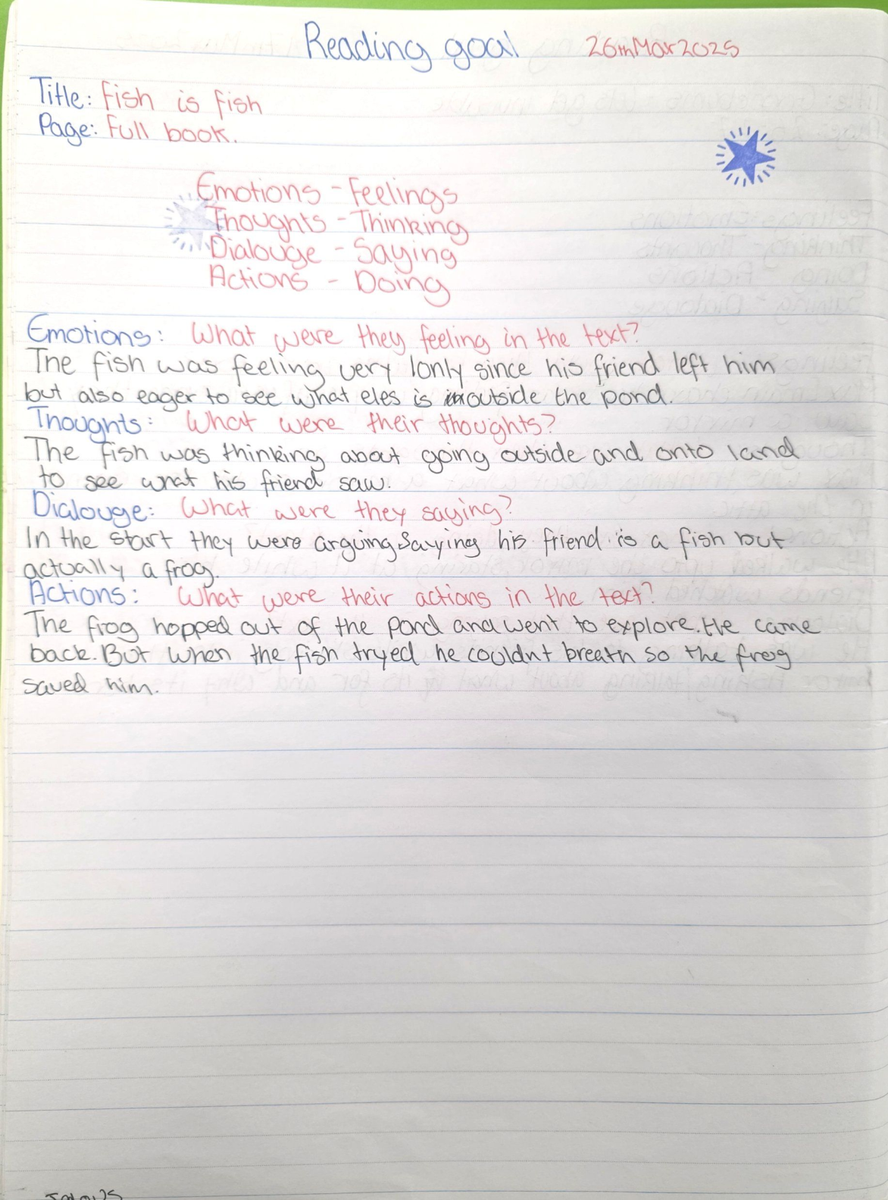 Reading goal 26thMar2025
Title: Fish is fish
Page: Full book.
Emotions - Feelings
Thoughts - Thinking
Dialouge - Saying
Actions - Doing
Emotions: What were they feeling in the text?
The fish was feeling very lonly since his friend left him
but also eager to see what eles is outside the pond.
Thoughts: What were their thoughts?
The fish was thinking about going outside and onto land
to see what his friend saw.
Dialouge: What were they saying?
In the start they were arguing saying his friend is a fish but
actually a frog.
Actions: What were their actions in the text?
The frog hopped out of the pond and went to explore. He came
back. But when the fish tryed he couldnt breath so the frog
saved him.